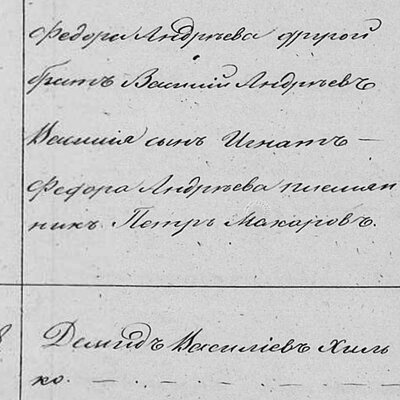 Федора Андрѣева другой
братъ Василій Андрѣевъ
Василія сынъ Игнатъ —
Федора Андрѣева племян
никъ Петръ Макаровъ.
8 Демидъ Василіевъ Хиль
ко. — . — . — . — . —